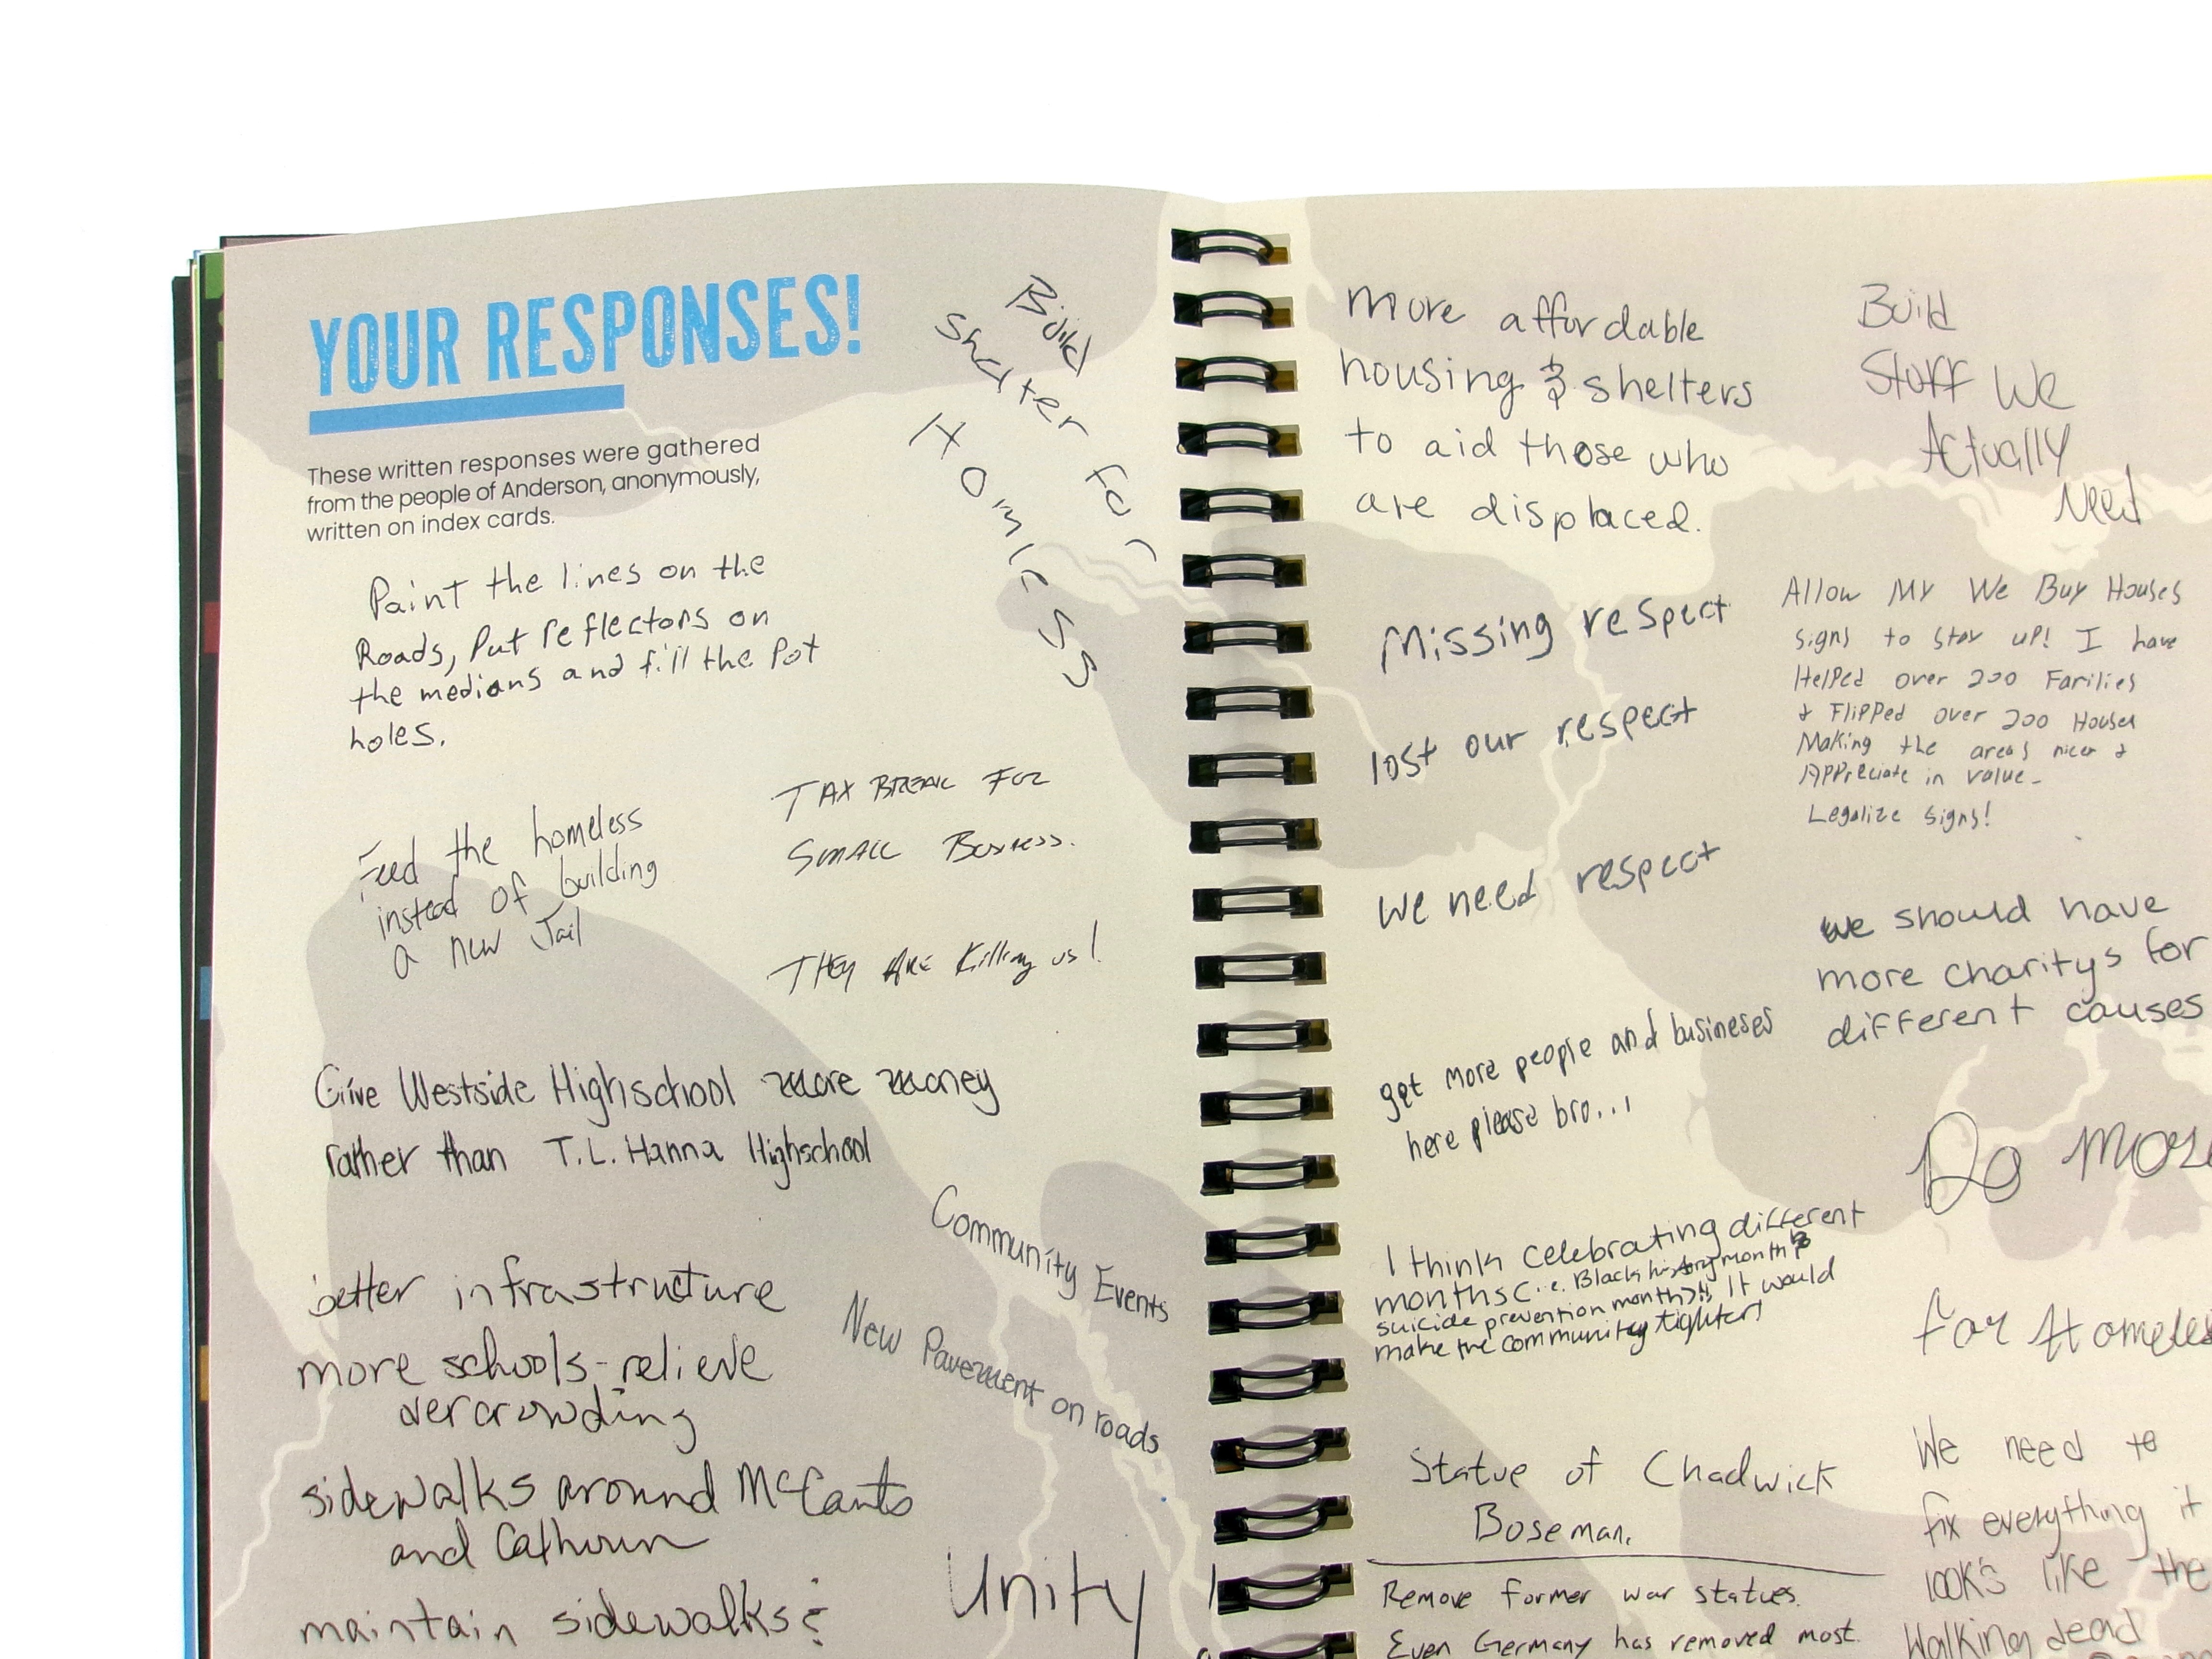 YOUR RESPONSES!
These written responses were gathered
from the people of Anderson, anonymously,
written on index cards.
Build
Shelter For
Homless
Paint the lines on the
Roads, Put reflectors on
the medians and fill the Pot
holes.
Feed the homeless
instead of building
a new Jail
TAX BREAK FOR
SMALL BUSINESS.
THEY ARE Killing us!
Give Westside Highschool more money
rather than T.L. Hanna Highschool
Community Events
New Pavement on roads
better infrastructure
more schools-relieve
overcrowding
sidewalks around McCants
and Calhoun
maintain sidewalks &
Unity
more affordable
housing & shelters
to aid those who
are displaced.
Missing respect
lost our respect
We need respect
get more people and busineses
here please bro...!
I think celebrating different
months (i.e. Black history month &
suicide prevention month)!! It would
make the community tighter!
Statue of Chadwick
Boseman.
Remove former war statues.
Even Germany has removed most.
Build
Stuff We
Actually
Need
Allow My We Buy Houses
signs to stay up! I have
Helped over 200 Families
& Flipped over 200 Houses
Making the areas nicer &
Appreciate in value-
Legalize signs!
we should have
more charitys for
different causes
Do More
for Homeles
We need to
fix everything it
look's like the
Walking dead